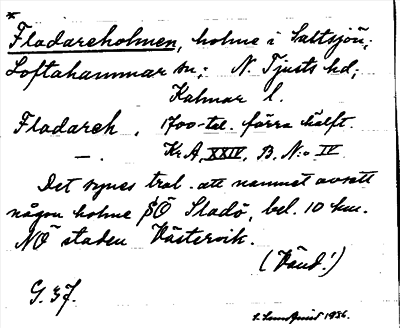 *
Fladareholmen, holme i Saltsjön;
Loftahammar sn; N. Tjusts hd;
Kalmar l.
Fladareh. 1700-tal. förra hälft.
—. Kr.A. XXIV. B. N:o IV
Det synes tral. att namnet avsett
någon holme SÖ Sladö, bel. 10 km.
NÖ staden Västervik.
(Vänd!)
G. 37.
1936.